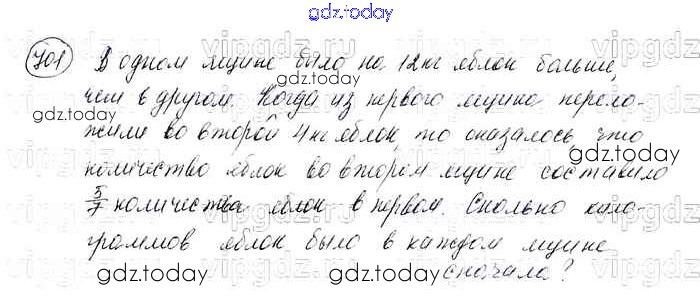 gdz.today
701 В одном ящике было на 12 кг яблок больше,
чем в другом. Когда из первого ящика перело-
жили во второй 4 кг яблок, то оказалось, что
количество яблок во втором ящике составило
5/7 количества яблок в первом. Сколько кило-
граммов яблок было в каждом ящике
сначала?
gdz.today
gdz.today
gdz.today
gdz.today
gdz.today
gdz.today
gdz.today